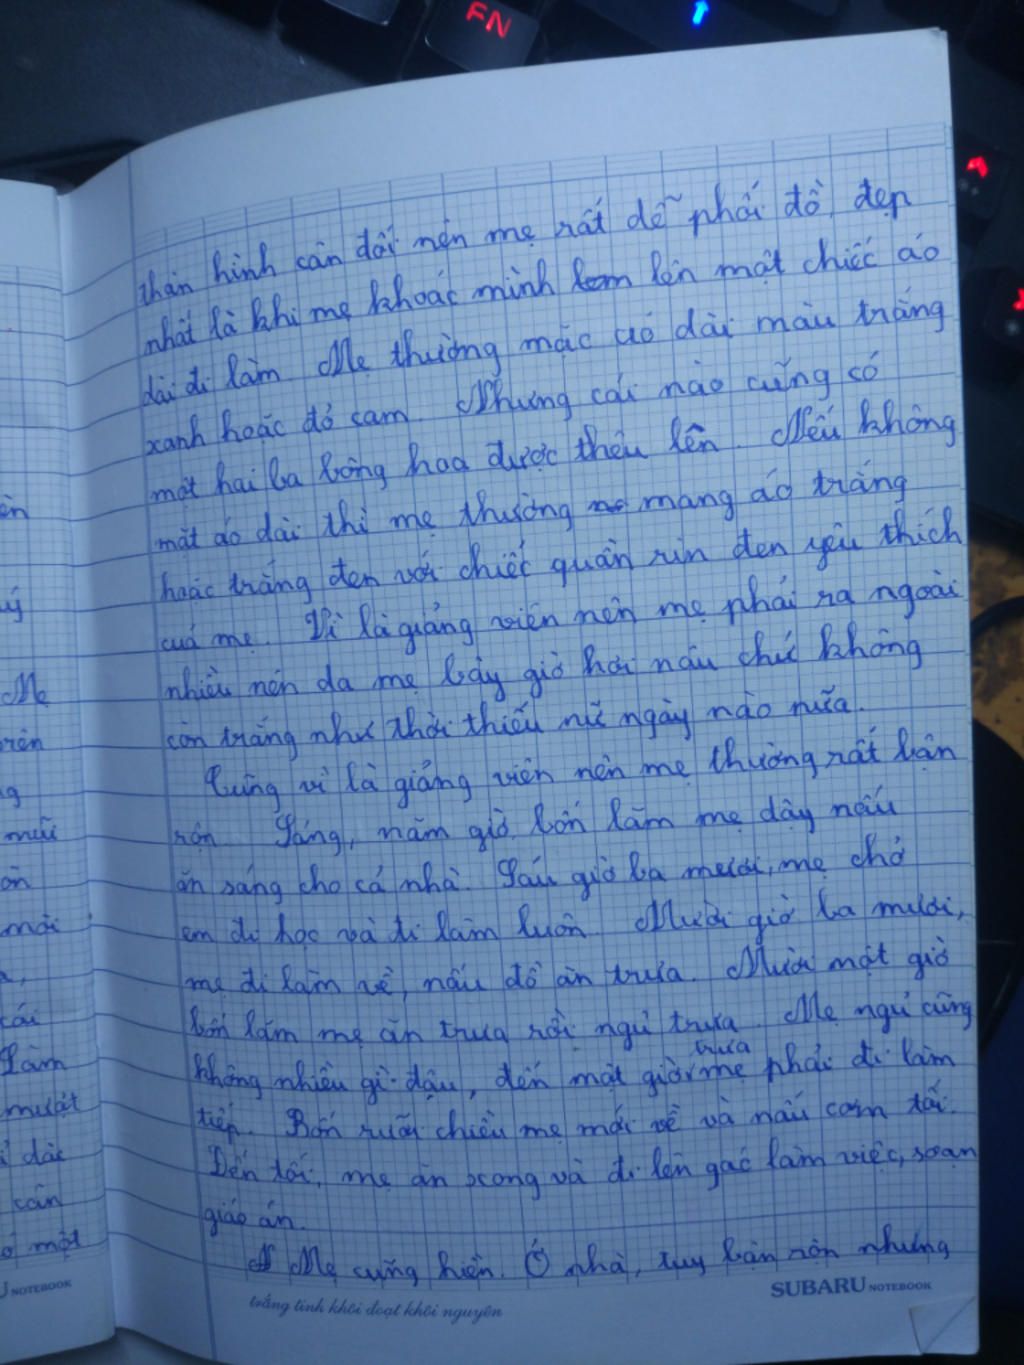 FN
thân hình cân đối nên mẹ rất dễ phối đồ, đẹp
nhất là khi mẹ khoác mình lên một chiếc áo
dài đi làm. Mẹ thường mặc áo dài màu trắng
xanh hoặc đỏ cam. Nhưng cái nào cũng có
một hai ba bông hoa được thêu lên. Nếu không
mặt áo dài thì mẹ thường mang áo trắng
hoặc trắng đen với chiếc quần rin đen yêu thích
của mẹ. Vì là giảng viên nên mẹ phải ra ngoài
nhiều nên da mẹ bây giờ hơi nâu chứ không
còn trắng như thời thiếu nữ ngày nào nữa.
Cũng vì là giảng viên nên mẹ thường rất bận
rộn. Sáng, năm giờ bốn lăm mẹ dậy nấu
ăn sáng cho cả nhà. Sáu giờ ba mươi, mẹ chở
em đi học và đi làm luôn. Mười giờ ba mươi,
mẹ đi làm về, nấu đồ ăn trưa. Mười một giờ
bốn lăm mẹ ăn trưa rồi ngủ trưa. Mẹ ngủ cũng
không nhiều gì đậu, đến một giờ trưa mẹ phải đi làm
tiếp. Bốn rưỡi chiều mẹ mới về và nấu cơm tối.
Đến tối, mẹ ăn xong và đi lên gác làm việc, soạn
giáo án.
Mẹ cũng hiền. Ở nhà, tuy bận rộn nhưng
SUBARU NOTEBOOK
trắng tinh khôi đoạt khôi nguyên
Mẹ
mũi
mới
cái
Làm
mượt
cân
một
NOTEBOOK